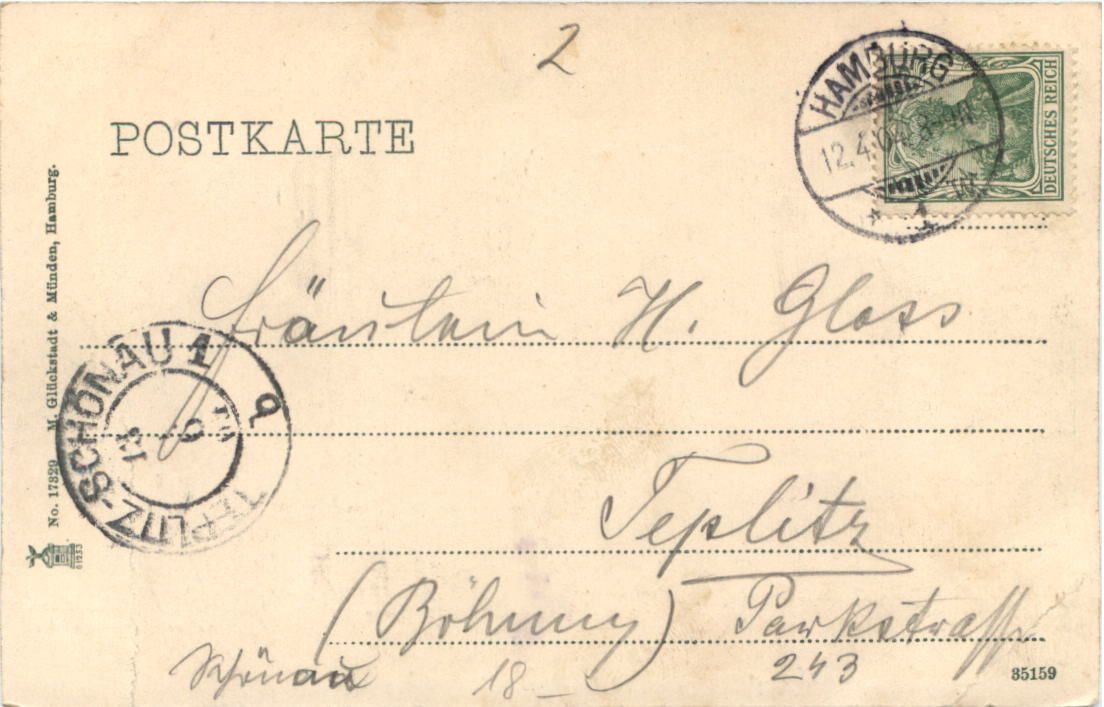 2
POSTKARTE
HAMBURG
12.4.04. 8-9N.
* 1 *
DEUTSCHES REICH
No. 17829 M. Glückstadt & Münden, Hamburg.
Fräulein H. Gloss
TEPLITZ-SCHÖNAU 1
Teplitz
(Böhmen) Parkstrasse
Schönau 18 - 243
35159